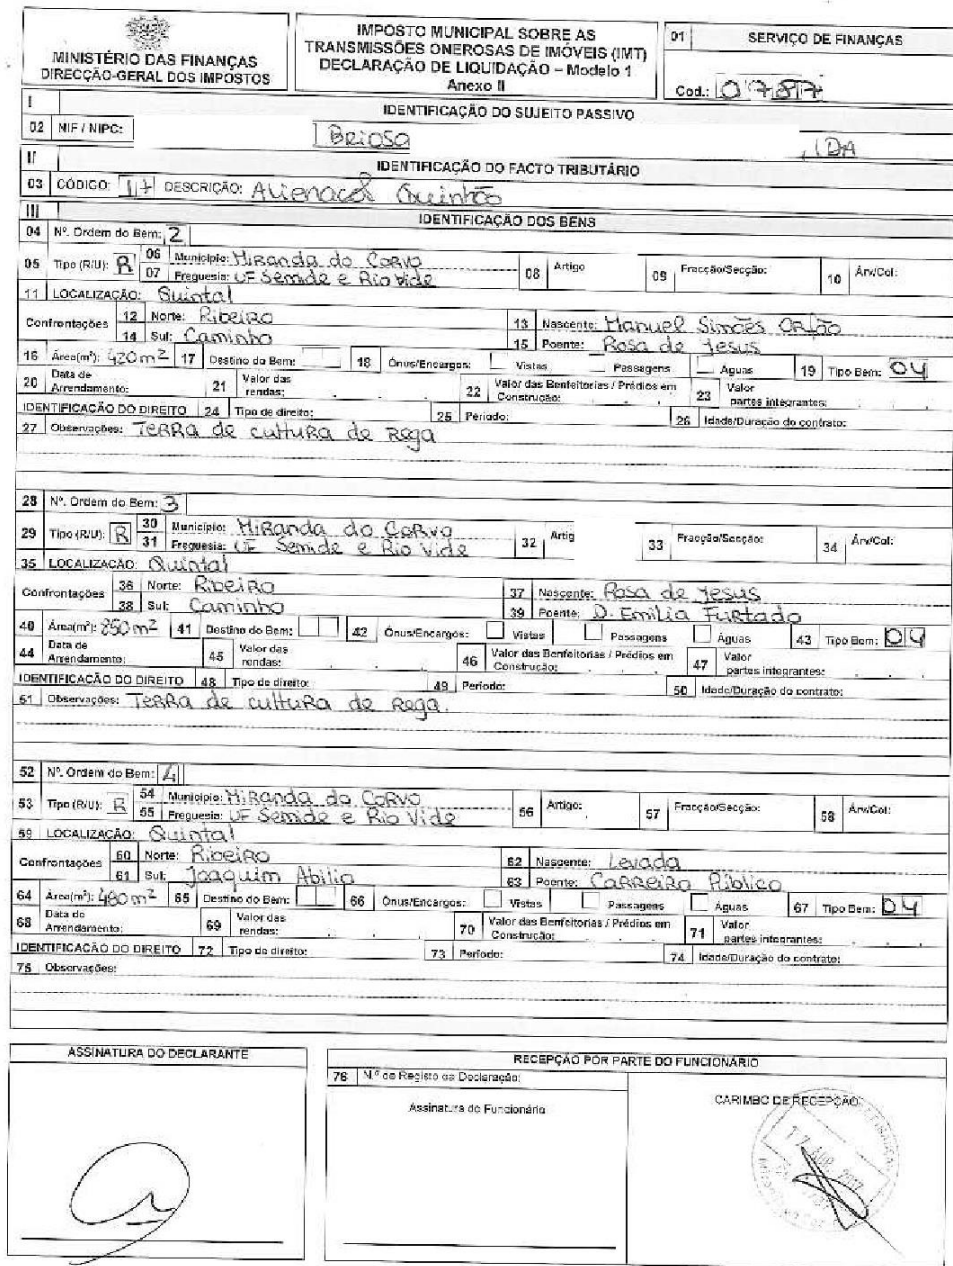 MINISTÉRIO DAS FINANÇAS
DIRECÇÃO-GERAL DOS IMPOSTOS
IMPOSTO MUNICIPAL SOBRE AS
TRANSMISSÕES ONEROSAS DE IMÓVEIS (IMT)
DECLARAÇÃO DE LIQUIDAÇÃO – Modelo 1
Anexo II
01 SERVIÇO DE FINANÇAS
Cod.: 0787
I IDENTIFICAÇÃO DO SUJEITO PASSIVO
02 NIF / NIPC: Briosa, LDA
II IDENTIFICAÇÃO DO FACTO TRIBUTÁRIO
03 CÓDIGO: 17 DESCRIÇÃO: Alienaçaõ Quinhão
III IDENTIFICAÇÃO DOS BENS
04 Nº. Ordem do Bem: 2
05 Tipo (R/U): R 06 Município: Miranda do Corvo
07 Freguesia: UF Semide e Rio Vide 08 Artigo 09 Fracção/Secção: 10 Árv/Col:
11 LOCALIZAÇÃO: Quintal
Confrontações 12 Norte: Ribeiro 13 Nascente: Manuel Simões Orfão
14 Sul: Caminho 15 Poente: Rosa de Jesus
16 Área(m²): 420 m² 17 Destino do Bem: 18 Ónus/Encargos: Vistas Passagens Águas 19 Tipo Bem: 04
20 Data de Arrendamento: 21 Valor das rendas: 22 Valor das Benfeitorias / Prédios em Construção: 23 Valor partes integrantes:
IDENTIFICAÇÃO DO DIREITO 24 Tipo de direito: 25 Período: 26 Idade/Duração do contrato:
27 Observações: Terra de cultura de Rega
28 Nº. Ordem do Bem: 3
29 Tipo (R/U): R 30 Município: Miranda do Corvo
31 Freguesia: UF Semide e Rio Vide 32 Artig 33 Fracção/Secção: 34 Árv/Col:
35 LOCALIZAÇÃO: Quintal
Confrontações 36 Norte: Ribeiro 37 Nascente: Rosa de Jesus
38 Sul: Caminho 39 Poente: D. Emília Furtado
40 Área(m²): 250 m² 41 Destino do Bem: 42 Ónus/Encargos: Vistas Passagens Águas 43 Tipo Bem: 04
44 Data de Arrendamento: 45 Valor das rendas: 46 Valor das Benfeitorias / Prédios em Construção: 47 Valor partes integrantes:
IDENTIFICAÇÃO DO DIREITO 48 Tipo de direito: 49 Período: 50 Idade/Duração do contrato:
51 Observações: Terra de cultura de Rega.
52 Nº. Ordem do Bem: 4
53 Tipo (R/U): R 54 Município: Miranda do Corvo
55 Freguesia: UF Semide e Rio Vide 56 Artigo: 57 Fracção/Secção: 58 Árv/Col:
59 LOCALIZAÇÃO: Quintal
Confrontações 60 Norte: Ribeiro 62 Nascente: Levada
61 Sul: Joaquim Abílio 63 Poente: Carreiro Público
64 Área(m²): 480 m² 65 Destino do Bem: 66 Ónus/Encargos: Vistas Passagens Águas 67 Tipo Bem: 04
68 Data de Arrendamento: 69 Valor das rendas: 70 Valor das Benfeitorias / Prédios em Construção: 71 Valor partes integrantes:
IDENTIFICAÇÃO DO DIREITO 72 Tipo de direito: 73 Período: 74 Idade/Duração do contrato:
75 Observações:
ASSINATURA DO DECLARANTE
RECEPÇÃO POR PARTE DO FUNCIONÁRIO
76 N.º de Registo da Declaração:
Assinatura do Funcionário
CARIMBO DE RECEPÇÃO